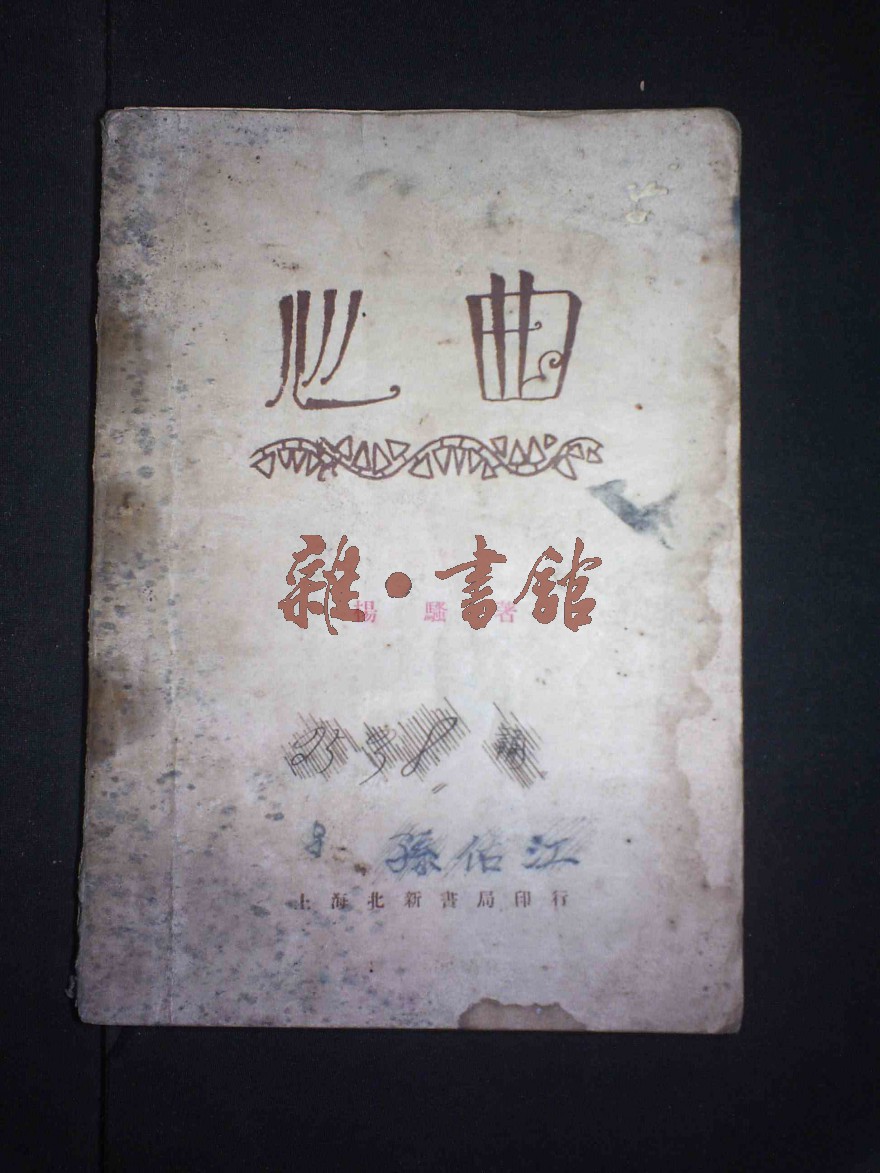 心曲
雜·書館
楊騷著
孫佑江
上海北新書局印行